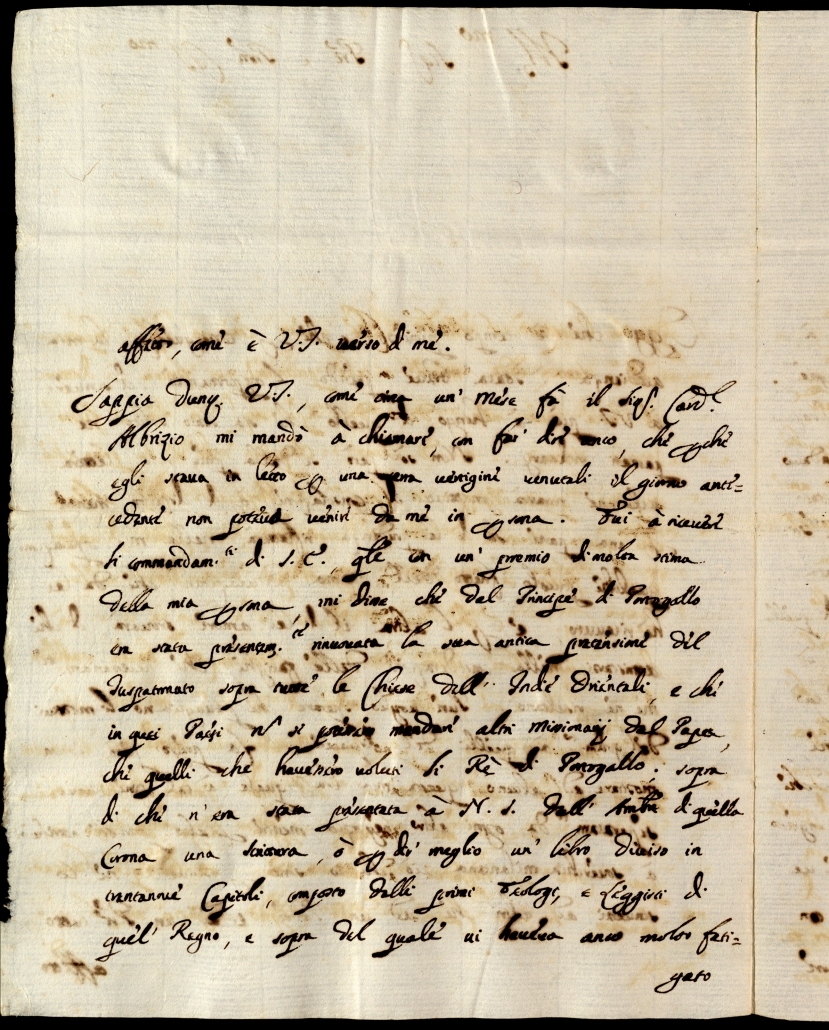 affetto, come è V.S. verso di me.
Sappia dunq. V.S., come circa un' Mese fà il Sigr. Cardl.
Albrizio mi mandò à chiamare, con far' dire anco, che perche
egli stava in letto per una certa vertigine venutali il giorno ante=
cedente non poteva venire da me in persona. Fui à ricevere
li commandam.ti di S. E., qle con un' premio di molta stima
della mia persona, mi disse che dal Principe di Portogallo
era stata presentem.te rinuovata la sua antica pretensione del
Juspatronato sopra tutte le Chiese dell' Indie Orientali, e che
in quei Paesi nn si potessero mandare altri Missionarij dal Papa,
che quelli che havessero voluti li Rè di Portogallo; sopra
di che n'era stata presentata à N. S. dall' Ambre di quella
Corona una scrittura, ò per dir meglio un' libro diviso in
trentanove Capitoli, composto dalli primi Teologi, e Leggisti di
quel' Regno, e sopra del quale vi haveva anco molto fati=
gato